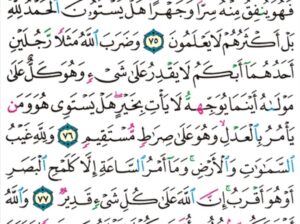 فَهُوَ يُنفِقُ مِنْهُ سِرًّا وَجَهْرًا هَلْ يَسْتَوُۥنَ ٱلْحَمْدُ لِلَّهِ
بَلْ أَكْثَرُهُمْ لَا يَعْلَمُونَ ٧٥ وَضَرَبَ ٱللَّهُ مَثَلًا رَّجُلَيْنِ
أَحَدُهُمَآ أَبْكَمُ لَا يَقْدِرُ عَلَىٰ شَىْءٍ وَهُوَ كَلٌّ عَلَىٰ
مَوْلَىٰهُ أَيْنَمَا يُوَجِّههُّ لَا يَأْتِ بِخَيْرٍ هَلْ يَسْتَوِى هُوَ وَمَن
يَأْمُرُ بِٱلْعَدْلِ وَهُوَ عَلَىٰ صِرَٰطٍ مُّسْتَقِيمٍ ٧٦ وَلِلَّهِ غَيْبُ
ٱلسَّمَٰوَٰتِ وَٱلْأَرْضِ وَمَآ أَمْرُ ٱلسَّاعَةِ إِلَّا كَلَمْحِ ٱلْبَصَرِ
أَوْ هُوَ أَقْرَبُ إِنَّ ٱللَّهَ عَلَىٰ كُلِّ شَىْءٍ قَدِيرٌ ٧٧ وَٱللَّهُ